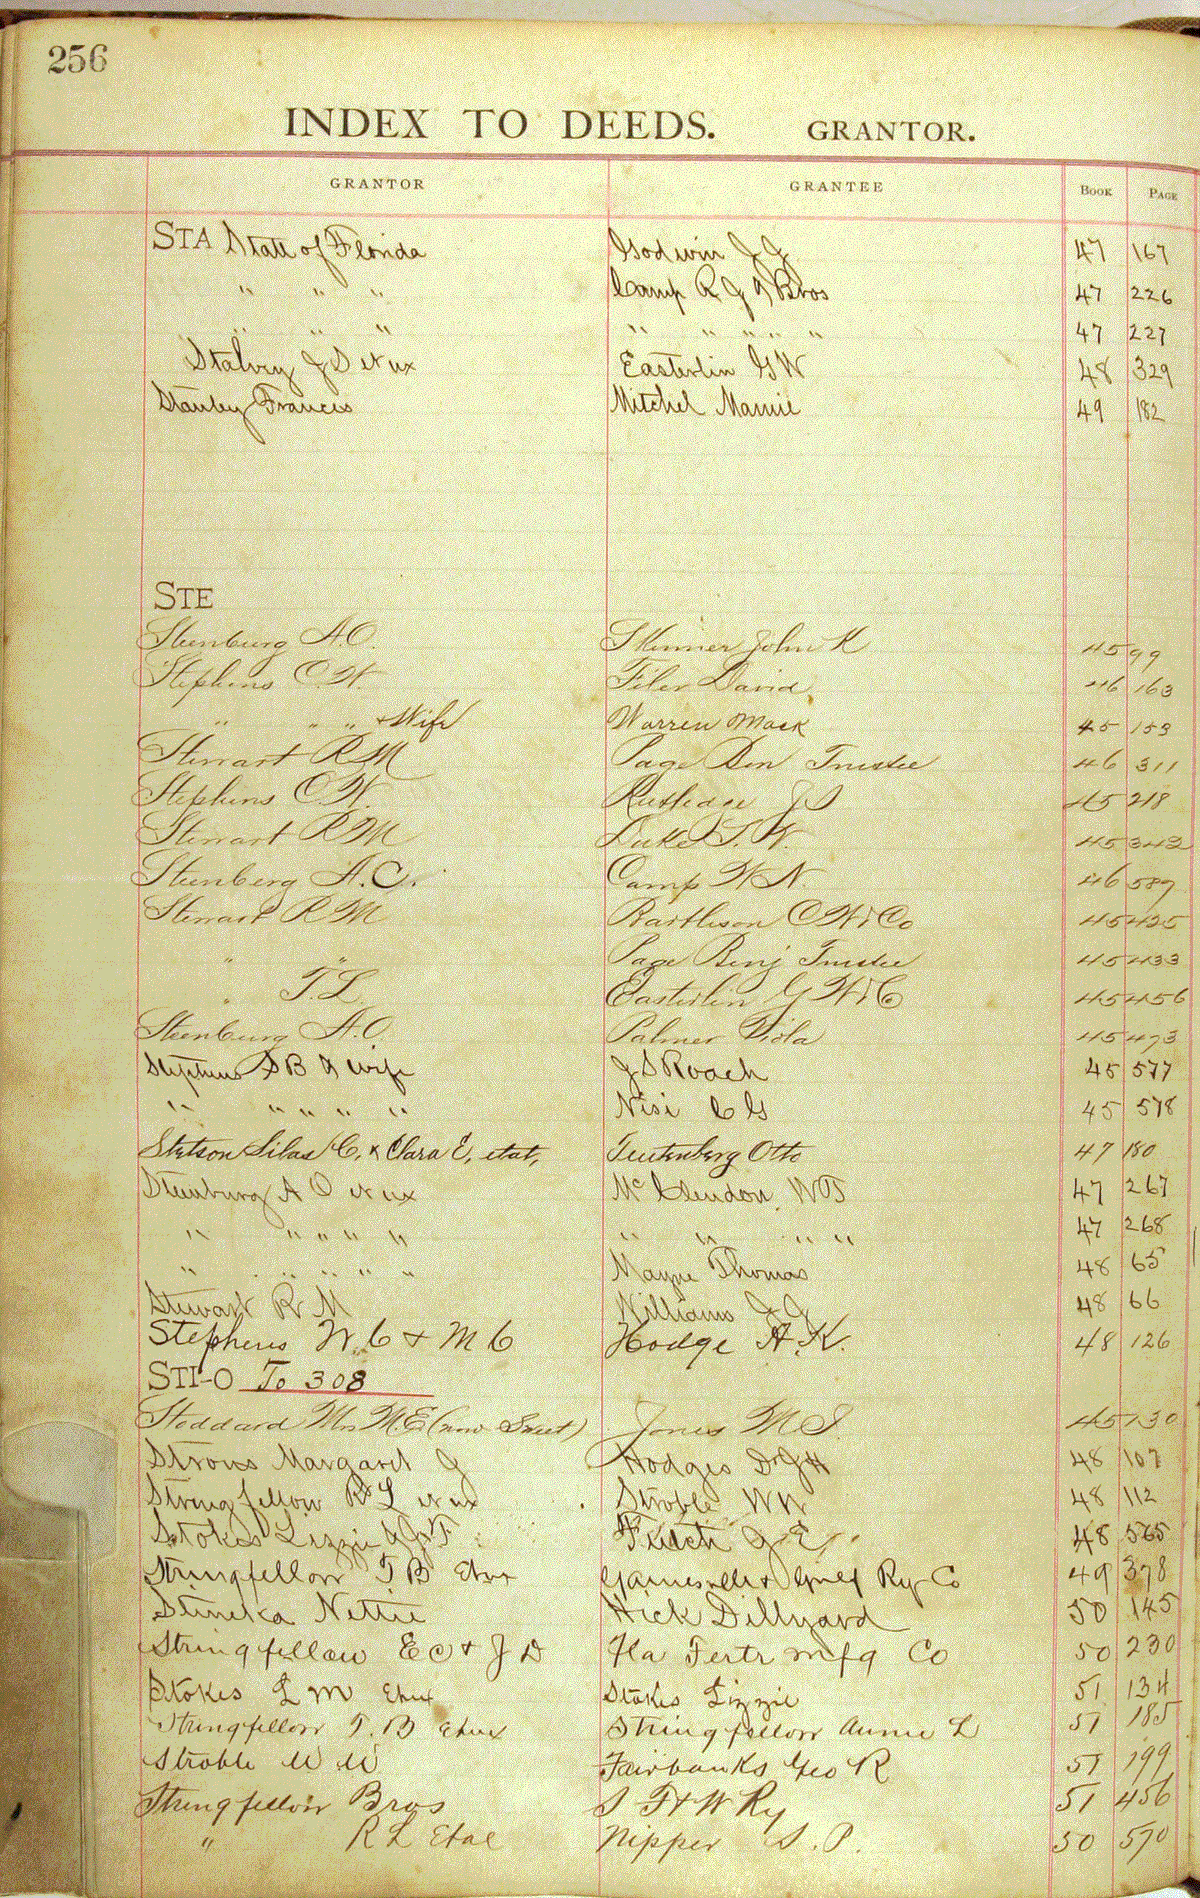 256
INDEX TO DEEDS. GRANTOR.
GRANTOR GRANTEE BOOK PAGE
STA State of Florida Godwin J J 47 167
" " " Camp R G & Bros 47 226
" " " " " " " " 47 227
Stalvey J S et ux Easterlin G W 48 329
Stanley Francis Mitchel Mamie 49 182
STE
Steenburg A.O. Skinner John K 45 99
Stephens O.H. Filer David 46 163
" " " & Wife Warren Mack 45 153
Stewart R M Page Ben Trustee 46 311
Stephens O.H. Rutledge J S 45 218
Stewart R M Duke T. W. 45 342
Steenberg A.O. Camp W N. 46 589
Stewart R M Bartleson C H & Co 45 425
" " Page Benj Trustee 45 433
" T.L. Easterlin G W & C 45 456
Steenburg A.O. Palmer Viola 45 493
Stephens S B & wife J S Roach 45 577
" " " " " Nisi C G 45 578
Stetson Silas C. & Clara E. etal, Teutenberg Otto 47 180
Steenburg A O et ux McClendon W T 47 267
" " " " " " " " " 47 268
" " " " " " Mayne Thomas 48 65
Stewart R M Williams J J 48 66
Stephens W. C & M C Hodge A. K. 48 126
STI-O To 308
Stoddard Mrs M.E. (now Sweet) Jones M S. 45 130
Strous Margaret J Hodges Dr J H 48 107
Stringfellow R L et ux Stroble W W 48 112
Stokes Lizzie & J F J E 48 565
Stringfellow T B Etux Gainesville & Gulf Ry Co 49 378
Stineka Nettie Hick Dillyard 50 145
Stringfellow E C & J D Fla Fertr mfg Co 50 230
Stokes L M Etux Stokes Lizzie 51 134
Stringfellow T. B Etux Stringfellow Annie L 51 185
Stroble W W Fairbanks Geo R 51 199
Stringfellow Bros S F & W Ry 51 456
" R L Etal Nipper S. P. 50 570